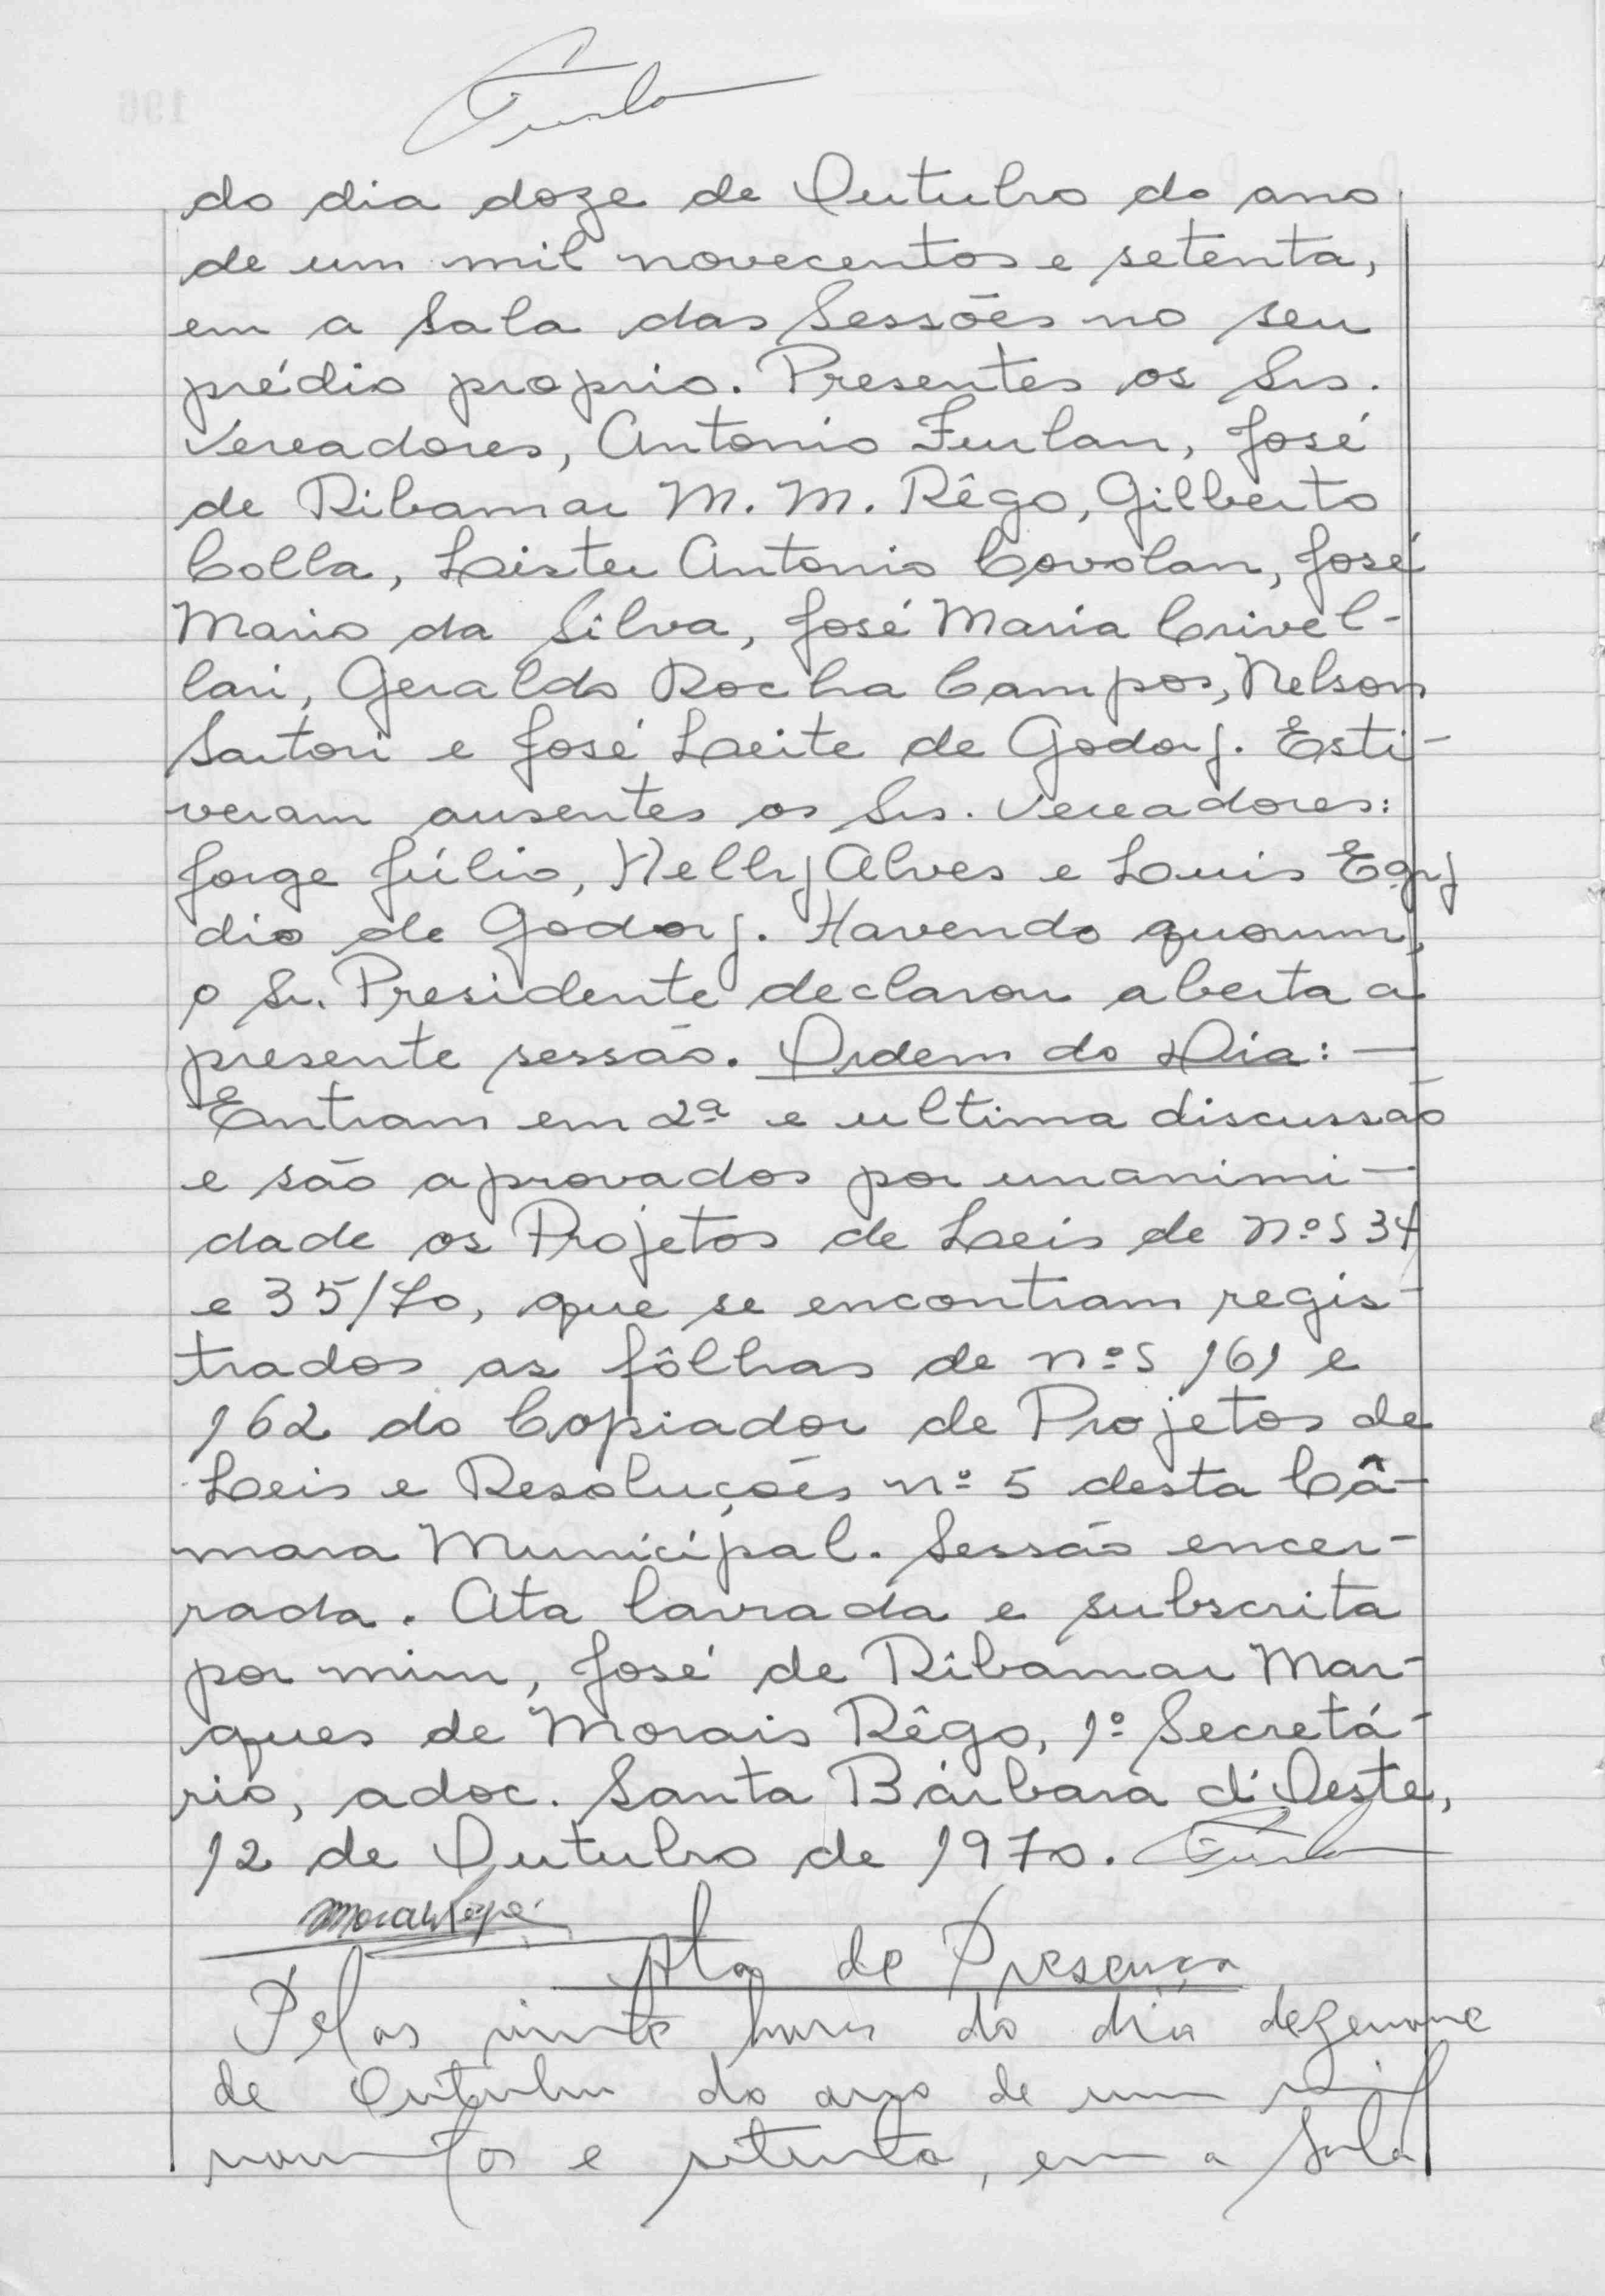 Furlan
do dia doze de Outubro do ano
de um mil novecentos e setenta,
em a Sala das Sessões no seu
prédio proprio. Presentes os Srs.
Vereadores, Antonio Furlan, José
de Ribamar M. M. Rêgo, Gilberto
Colla, Leister Antonio Covolan, José
Mario da Silva, José Maria Crivel-
lari, Geraldo Rocha Campos, Nelson
Sartori e José Leite de Godoy. Esti-
veram ausentes os Srs. Vereadores:
Jorge Júlio, Nelly Alves e Luis Egy
dio de Godoy. Havendo quorum,
o Sr. Presidente declarou aberta a
presente sessão. Ordem do Dia: —
Entram em 2ª e ultima discussão
e são aprovados por unanimi-
dade os Projetos de Leis de nºs 34
e 35/70, que se encontram regis-
trados as fôlhas de nºs 161 e
162 do Copiador de Projetos de
Leis e Resoluções nº 5 desta Câ-
mara Municipal. Sessão encer-
rada. Ata lavrada e subscrita
por mim, José de Ribamar Mar-
ques de Morais Rêgo, 1º Secretá-
rio, adoc. Santa Bárbara d'Oeste,
12 de Outubro de 1970. Furlan
Ata de Presença
Pelas vinte horas do dia dezenove
de Outubro do ano de um mil
novecentos e setenta, em a Sala